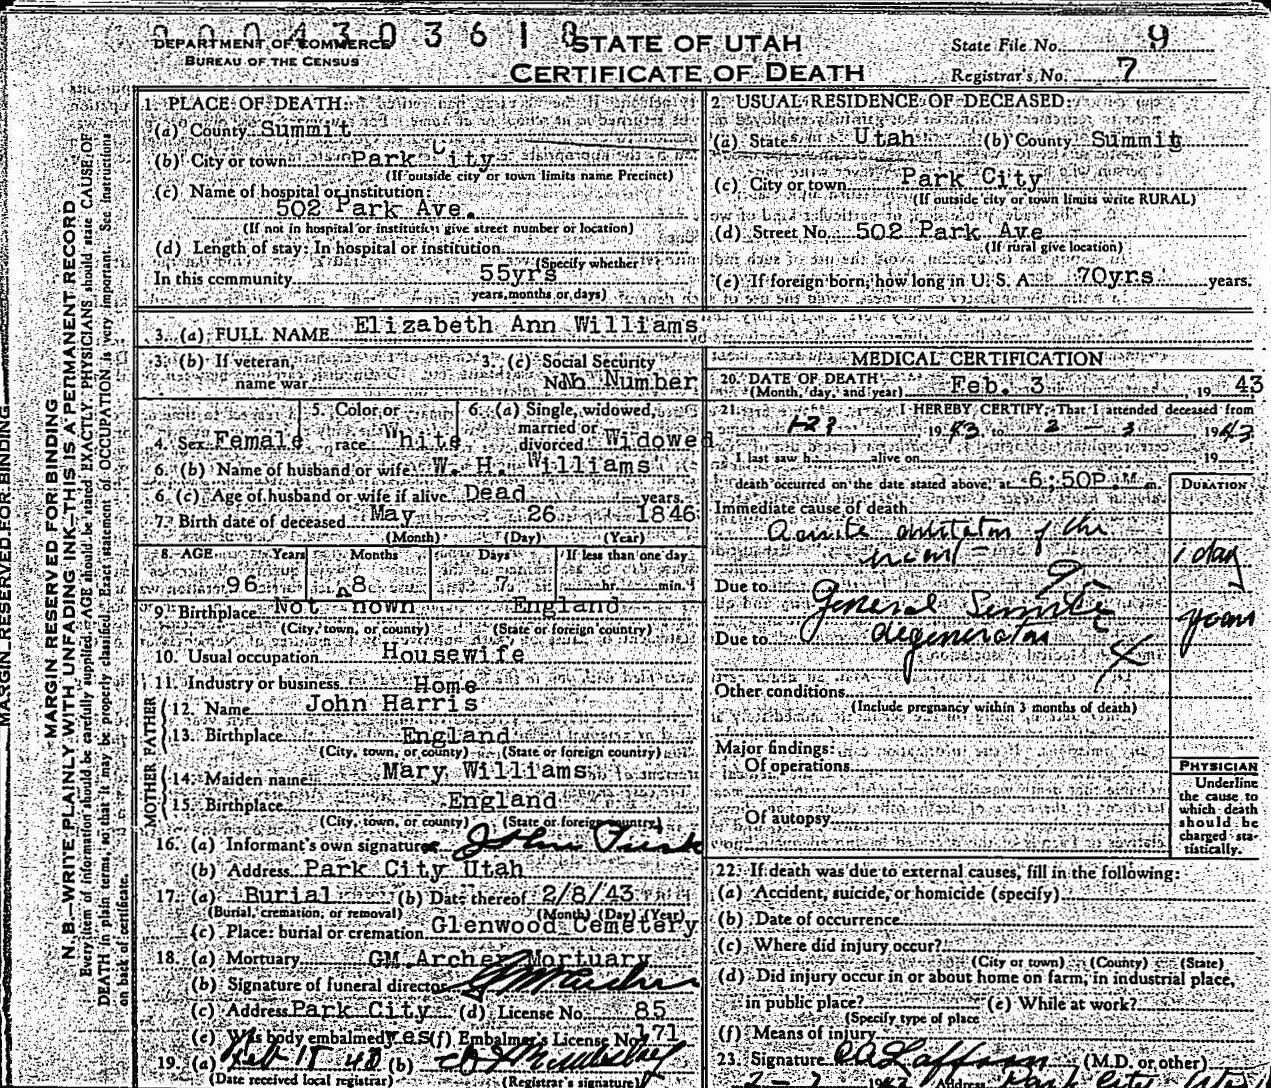 0 0 0 4 3 0 3 6 1 8
DEPARTMENT OF COMMERCE
BUREAU OF THE CENSUS
STATE OF UTAH
CERTIFICATE OF DEATH
State File No. 9
Registrar's No. 7
MARGIN RESERVED FOR BINDING
MARGIN RESERVED FOR BINDING
N. B.—WRITE PLAINLY WITH UNFADING INK—THIS IS A PERMANENT RECORD
Every item of information should be carefully supplied. AGE should be stated EXACTLY. PHYSICIANS should state CAUSE OF
DEATH in plain terms, so that it may be properly classified. Exact statement of OCCUPATION is very important. See instructions
on back of certificate.
1. PLACE OF DEATH:
(a) County Summit
(b) City or town Park City
(If outside city or town limits name Precinct)
(c) Name of hospital or institution:
502 Park Ave.
(If not in hospital or institution give street number or location)
(d) Length of stay: In hospital or institution
(Specify whether
In this community 55yrs
years, months or days)
2. USUAL RESIDENCE OF DECEASED:
(a) State Utah (b) County Summit
(c) City or town Park City
(If outside city or town limits write RURAL)
(d) Street No. 502 Park Ave
(If rural give location)
(e) If foreign born, how long in U. S. A. 70yrs years.
3. (a) FULL NAME Elizabeth Ann Williams
3. (b) If veteran,
name war
3 (c) Social Security
No. No Number
4. Sex Female
5. Color or
race White
6. (a) Single, widowed,
married or
divorced Widowed
6. (b) Name of husband or wife W. H. Williams
6. (c) Age of husband or wife if alive Dead years.
7. Birth date of deceased May 26 1846
(Month) (Day) (Year)
8. AGE Years Months Days If less than one day
96 8 7 hr. min.
9. Birthplace Not nown England
(City, town, or county) (State or foreign country)
10. Usual occupation Housewife
11. Industry or business Home
FATHER
12. Name John Harris
13. Birthplace England
(City, town, or county) (State or foreign country)
MOTHER
14. Maiden name Mary Williams
15. Birthplace England
(City, town, or county) (State or foreign country)
16. (a) Informant's own signature John
(b) Address Park City Utah
17. (a) Burial (b) Date thereof 2/8/43
(Burial, cremation, or removal) (Month) (Day) (Year)
(c) Place: burial or cremation Glenwood Cemetery
18. (a) Mortuary GM Archer Mortuary
(b) Signature of funeral director GM Archer
(c) Address Park City (d) License No. 85
(e) Was body embalmed yes (f) Embalmer's License No. 171
19. (a) Feb 15 43 (b)
(Date received local registrar) (Registrar's signature)
MEDICAL CERTIFICATION
20. DATE OF DEATH Feb. 3, 19 43
(Month, day, and year)
21. I HEREBY CERTIFY, That I attended deceased from
19 43, to 2 - 3 19 43
I last saw h alive on 19
death occurred on the date stated above, at 6:50P.M m.
DURATION
Immediate cause of death
Acute dilitation of the
heart 1 day
Due to General Senile years
Due to degeneration
Other conditions
(Include pregnancy within 3 months of death)
Major findings:
Of operations
Of autopsy
PHYSICIAN
Underline
the cause to
which death
should be
charged sta-
tistically.
22. If death was due to external causes, fill in the following:
(a) Accident, suicide, or homicide (specify)
(b) Date of occurrence
(c) Where did injury occur?
(City or town) (County) (State)
(d) Did injury occur in or about home on farm, in industrial place,
in public place? (e) While at work?
(Specify type of place
(f) Means of injury
23. Signature (M.D. or other)
Address Park City